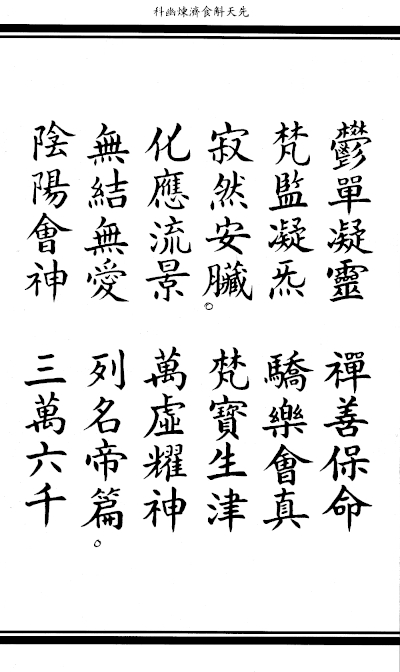 先天斛食濟煉幽科
鬱單凝靈　禪善保命
梵監凝炁　驕樂會真
寂然安臟。　梵寶生津
化應流景　萬虛耀神
無結無愛　列名帝篇。
陰陽會神　三萬六千